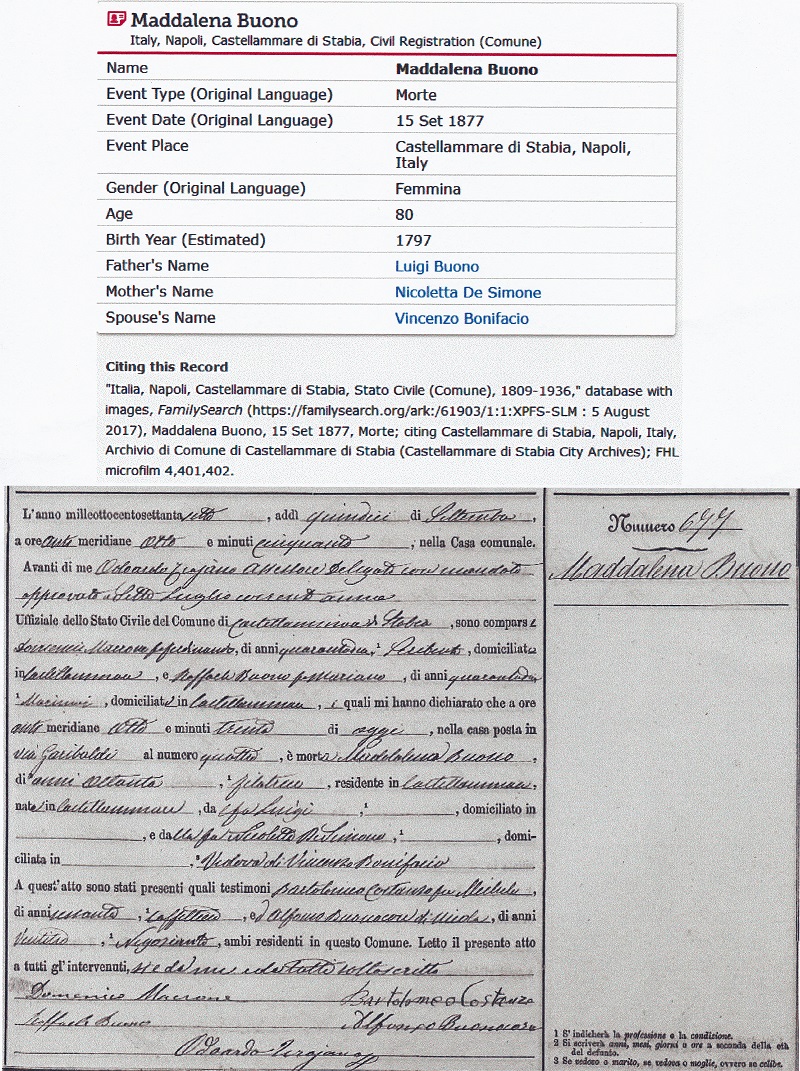 Maddalena Buono
Italy, Napoli, Castellammare di Stabia, Civil Registration (Comune)
Name Maddalena Buono
Event Type (Original Language) Morte
Event Date (Original Language) 15 Set 1877
Event Place Castellammare di Stabia, Napoli,
Italy
Gender (Original Language) Femmina
Age 80
Birth Year (Estimated) 1797
Father's Name Luigi Buono
Mother's Name Nicoletta De Simone
Spouse's Name Vincenzo Bonifacio
Citing this Record
"Italia, Napoli, Castellammare di Stabia, Stato Civile (Comune), 1809-1936," database with
images, FamilySearch (https://familysearch.org/ark:/61903/1:1:XPFS-SLM : 5 August
2017), Maddalena Buono, 15 Set 1877, Morte; citing Castellammare di Stabia, Napoli, Italy,
Archivio di Comune di Castellammare di Stabia (Castellammare di Stabia City Archives); FHL
microfilm 4,401,402.
L'anno milleottocentosettantasette, addì quindici di Settembre,
a ore anti meridiane otto e minuti cinquanta, nella Casa comunale.
Avanti di me Odoardo Trojano Assessore Delegato con mandato
approvato Sette Luglio corrente anno
Uffiziale dello Stato Civile del Comune di Castellammare di Stabia, sono comparsi
Domenico Macrone fu Ferdinando, di anni, 1, domiciliato
in Castellammare, e Raffaele Buono fu Mariano, di anni
1 Marinari, domiciliato in Castellammare, i quali mi hanno dichiarato che a ore
anti meridiane otto e minuti trenta di oggi, nella casa posta in
via Garibaldi al numero quattro, è morta Maddalena Buono,
di 2 anni ottanta, 1 filatrice, residente in Castellammare,
nata in Castellammare, da fu Luigi, 1, domiciliato in
, e dalla fu Nicoletta De Simone, 1, domi-
ciliata in, 3 Vedova di Vincenzo Bonifacio
A quest'atto sono stati presenti quali testimoni Bartolomeo Costanzo fu Michele,
di anni sessanta, 1 caffettiere, ed Alfonso Buonocore di Nicola, di anni
Ventitre, 1 Negoziante, ambi residenti in questo Comune. Letto il presente atto
a tutti gl'intervenuti, si è da me e da tutti sottoscritto
Domenico Macrone Bartolomeo Costanzo
Raffaele Buono Alfonso Buonocore
Odoardo Trojano
Numero 677
Maddalena Buono
1 S'indicherà la professione o la condizione.
2 Si scriverà anni, mesi, giorni o ore a seconda della età
del defunto.
3 Se vedovo o marito, se vedova o moglie, ovvero se celibe.